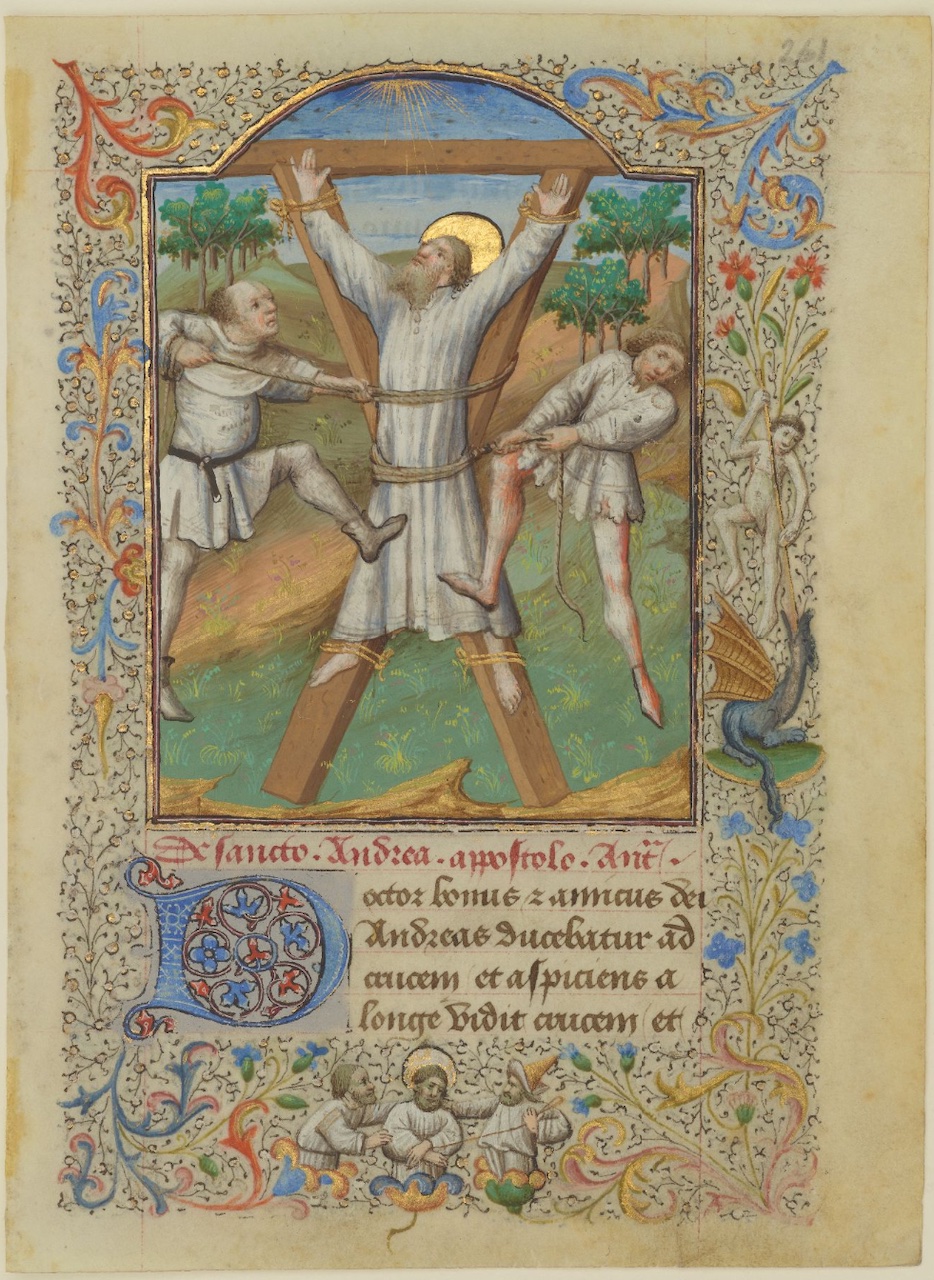 261
De sancto . Andrea . appostolo . Ant̄ .
Doctor bonus ⁊ amicus dei
Andreas ducebatur ad
crucem et aspiciens a
longe vidit crucem et